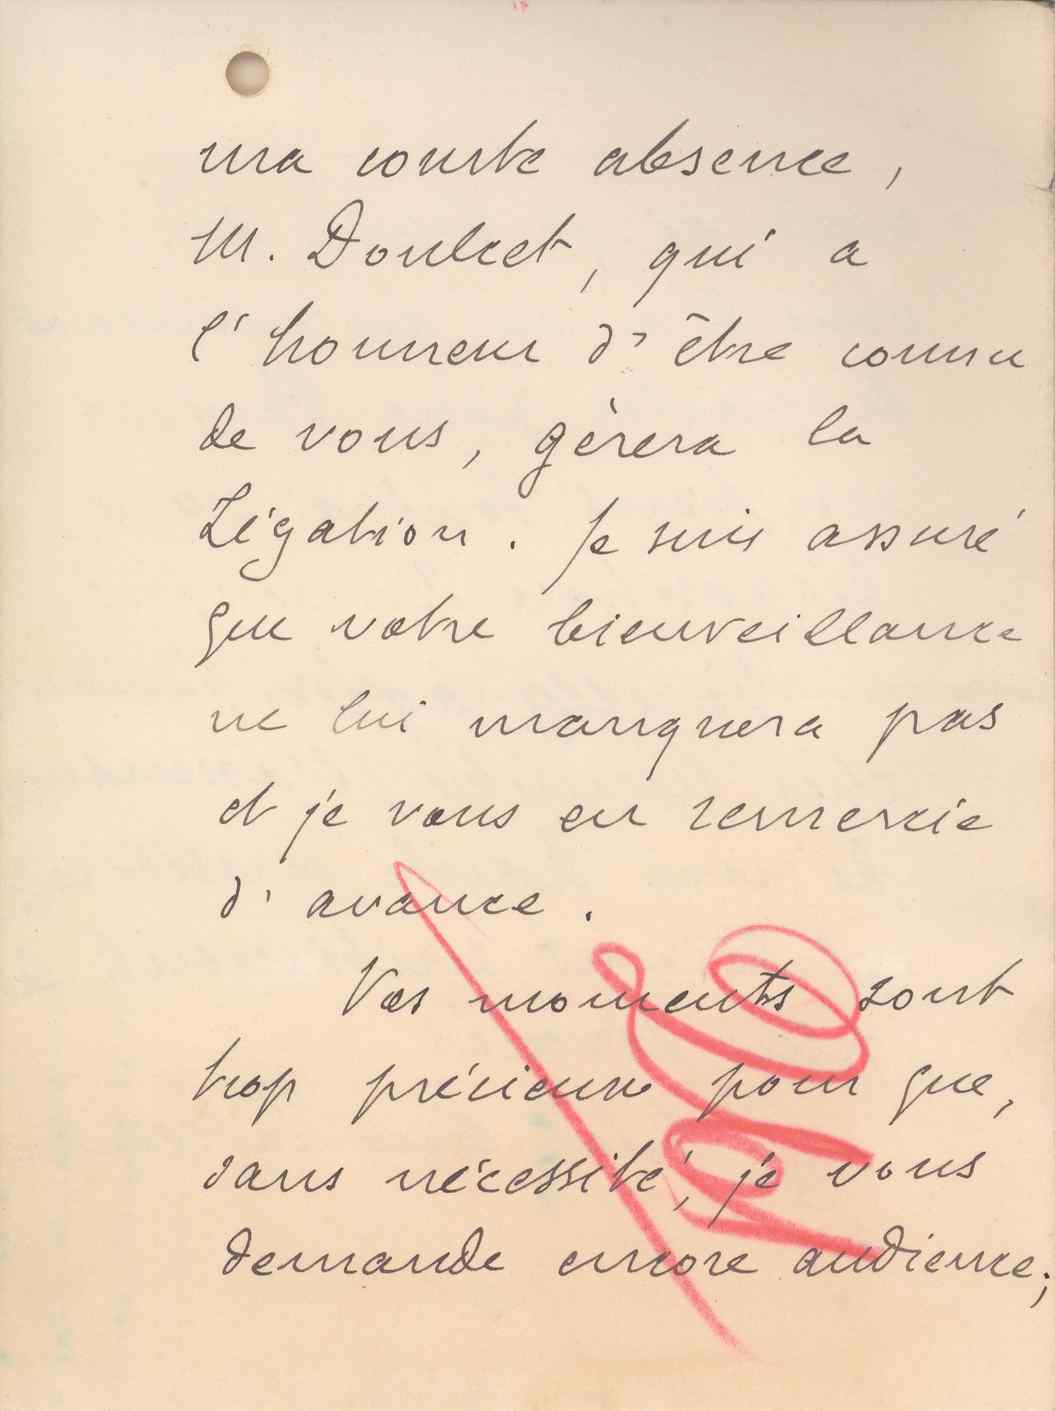 ma courte absence,
M. Doulcet, qui a
l'honneur d'être connu
de vous, gèrera la
Légation. Je suis assuré
que votre bienveillance
ne lui manquera pas
et je vous en remercie
d'avance.
Vos moments sont
trop précieux pour que,
sans nécessité, je vous
demande encore audience;